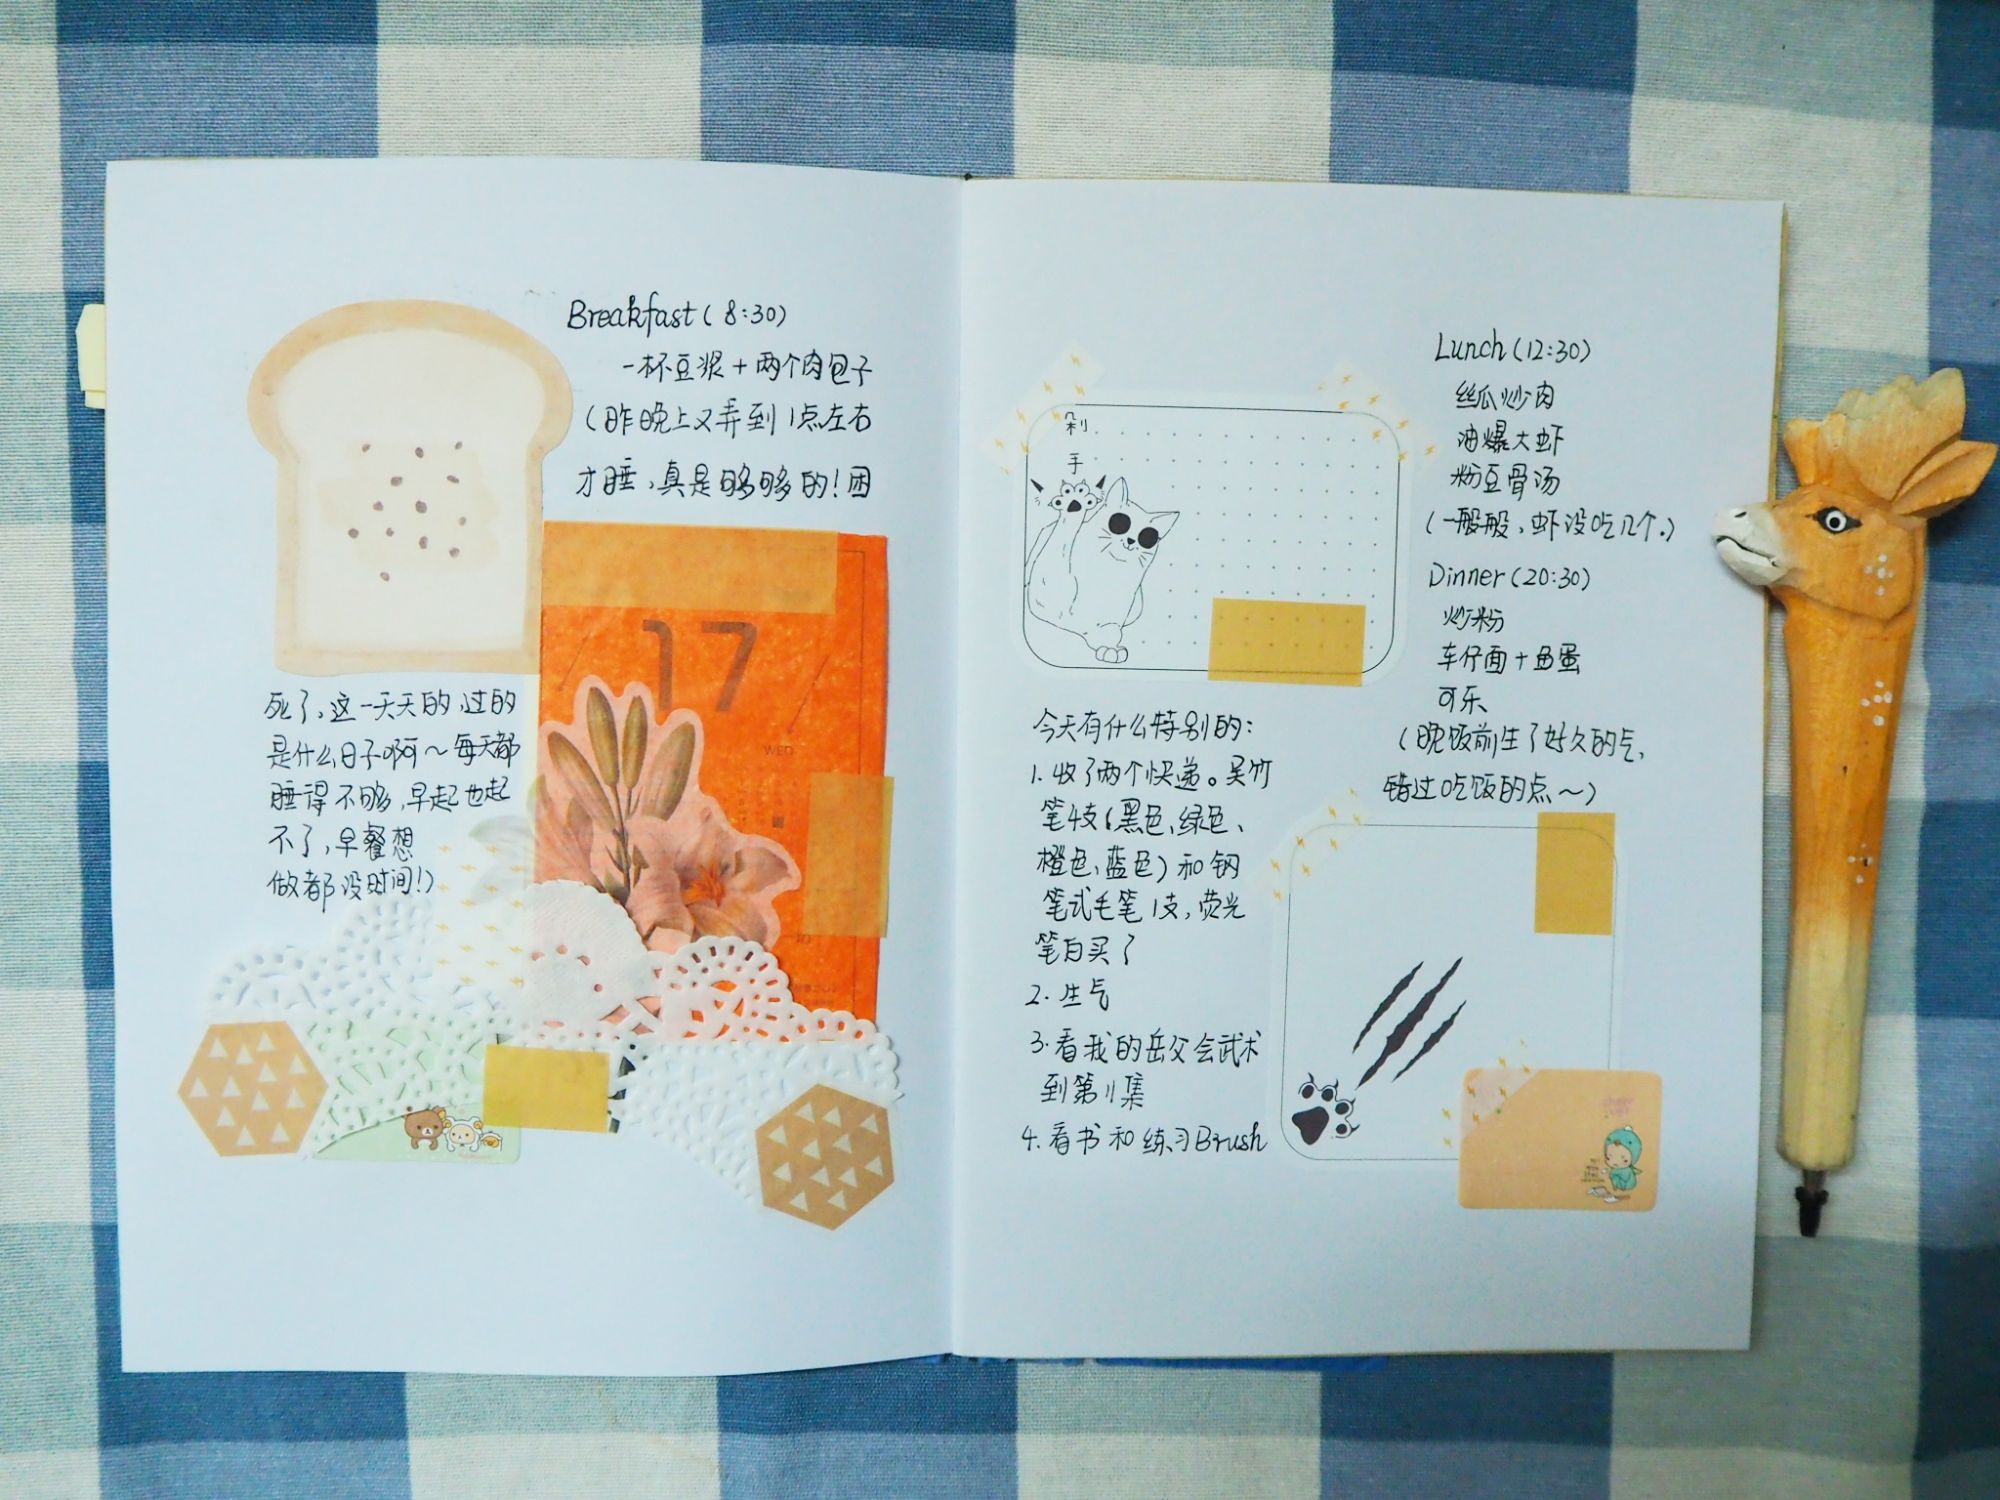 Breakfast(8:30)
一杯豆浆+两个肉包子
(昨晚上又弄到1点左右
才睡,真是够够的!困
死了,这一天天的,过的
是什么日子啊~每天都
睡得不够,早起也起
不了,早餐想
做都没时间!)
17
WED
剁
手
Lunch(12:30)
丝瓜炒肉
油爆大虾
粉豆骨汤
(一般般,虾没吃几个.)
Dinner(20:30)
炒粉
车仔面+鱼蛋
可乐
(晚饭前生了好久的气,
错过吃饭的点~)
今天有什么特别的:
1.收了两个快递。吴竹
笔4支(黑色、绿色、
橙色、蓝色)和钢
笔式毛笔1支,荧光
笔白买了
2.生气
3.看我的岳父会武术
到第11集
4.看书和练习Brush